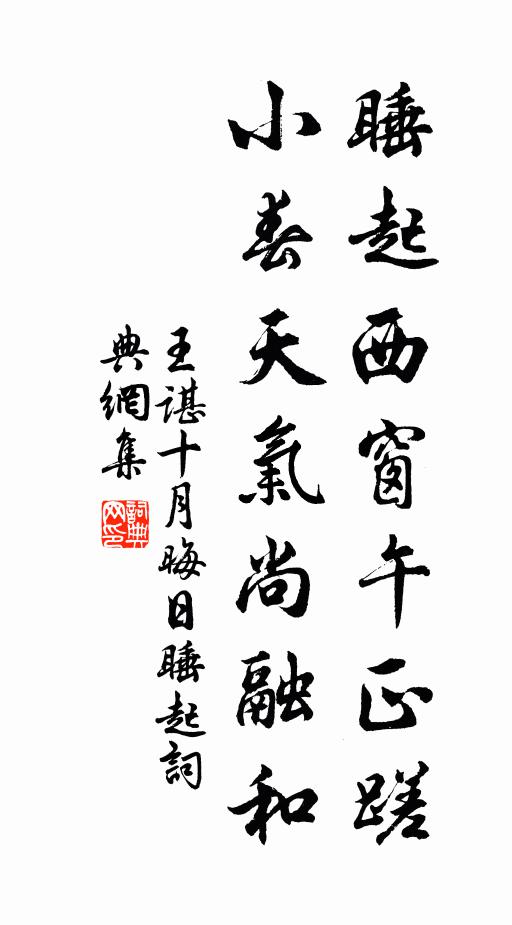 睡起西窗午正蹉
小春天氣尚融和
王諶十月晦日睡起詞
典網集
詞典
网印